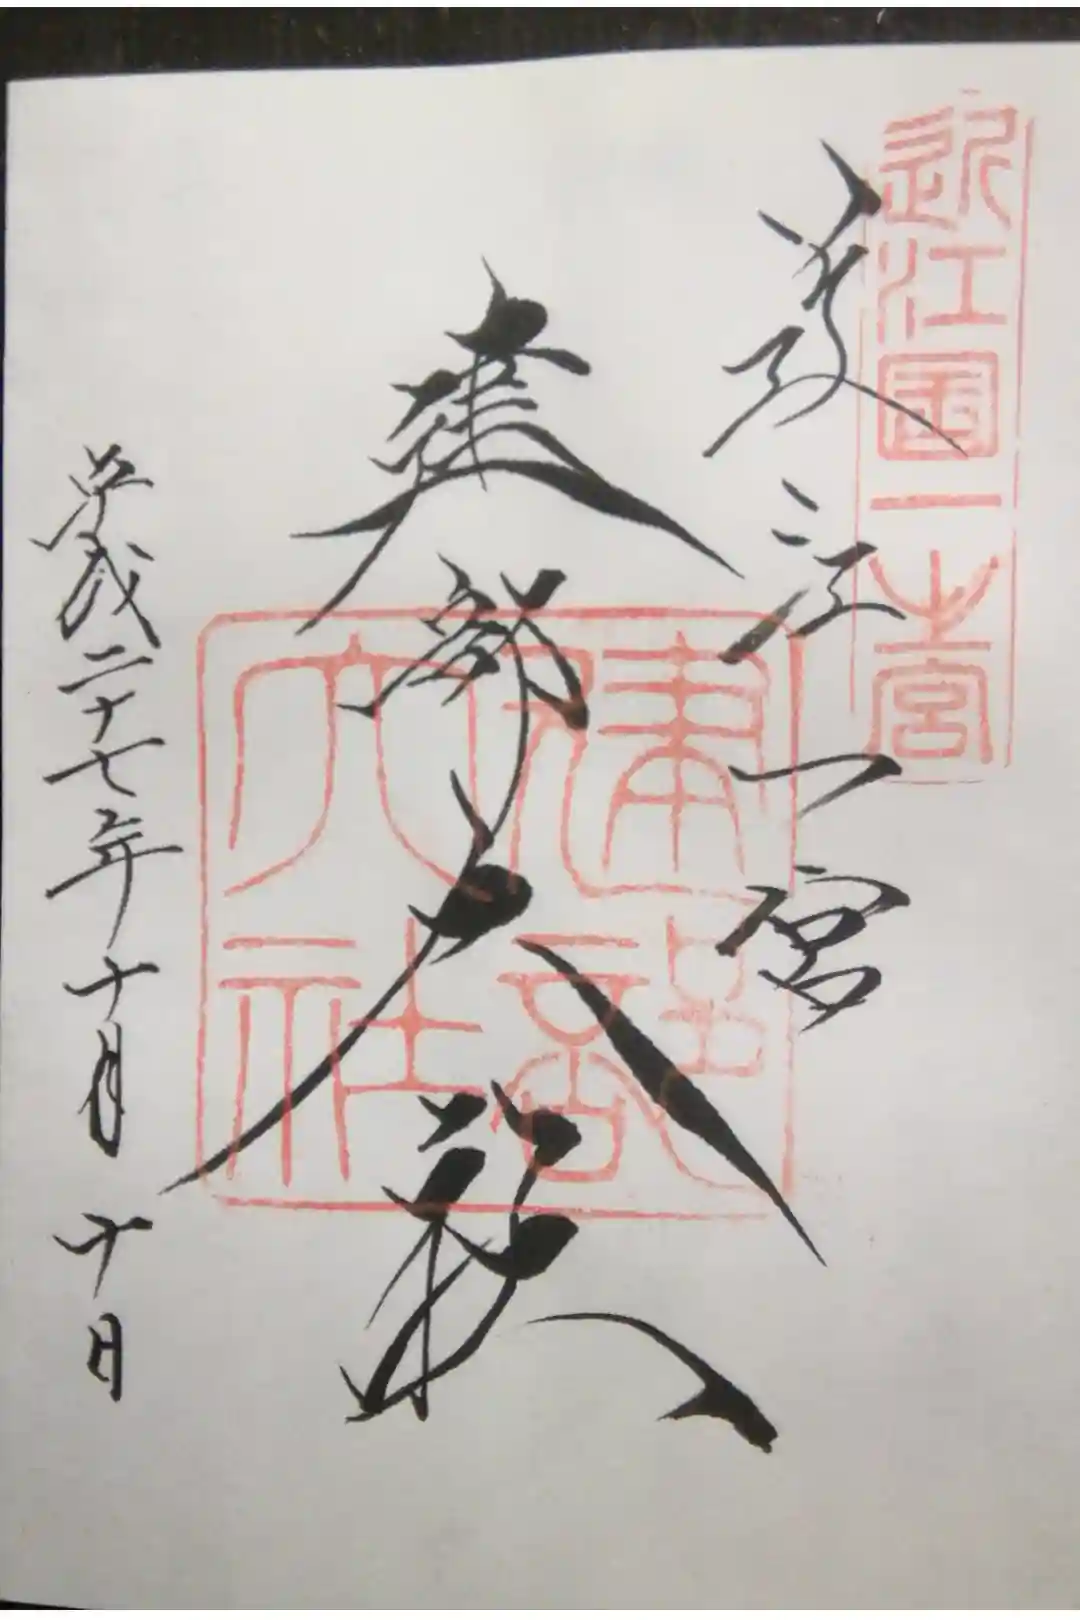 近江國一之宮
近江一宮
建部大社
建部大社
平成二十七年十月十日